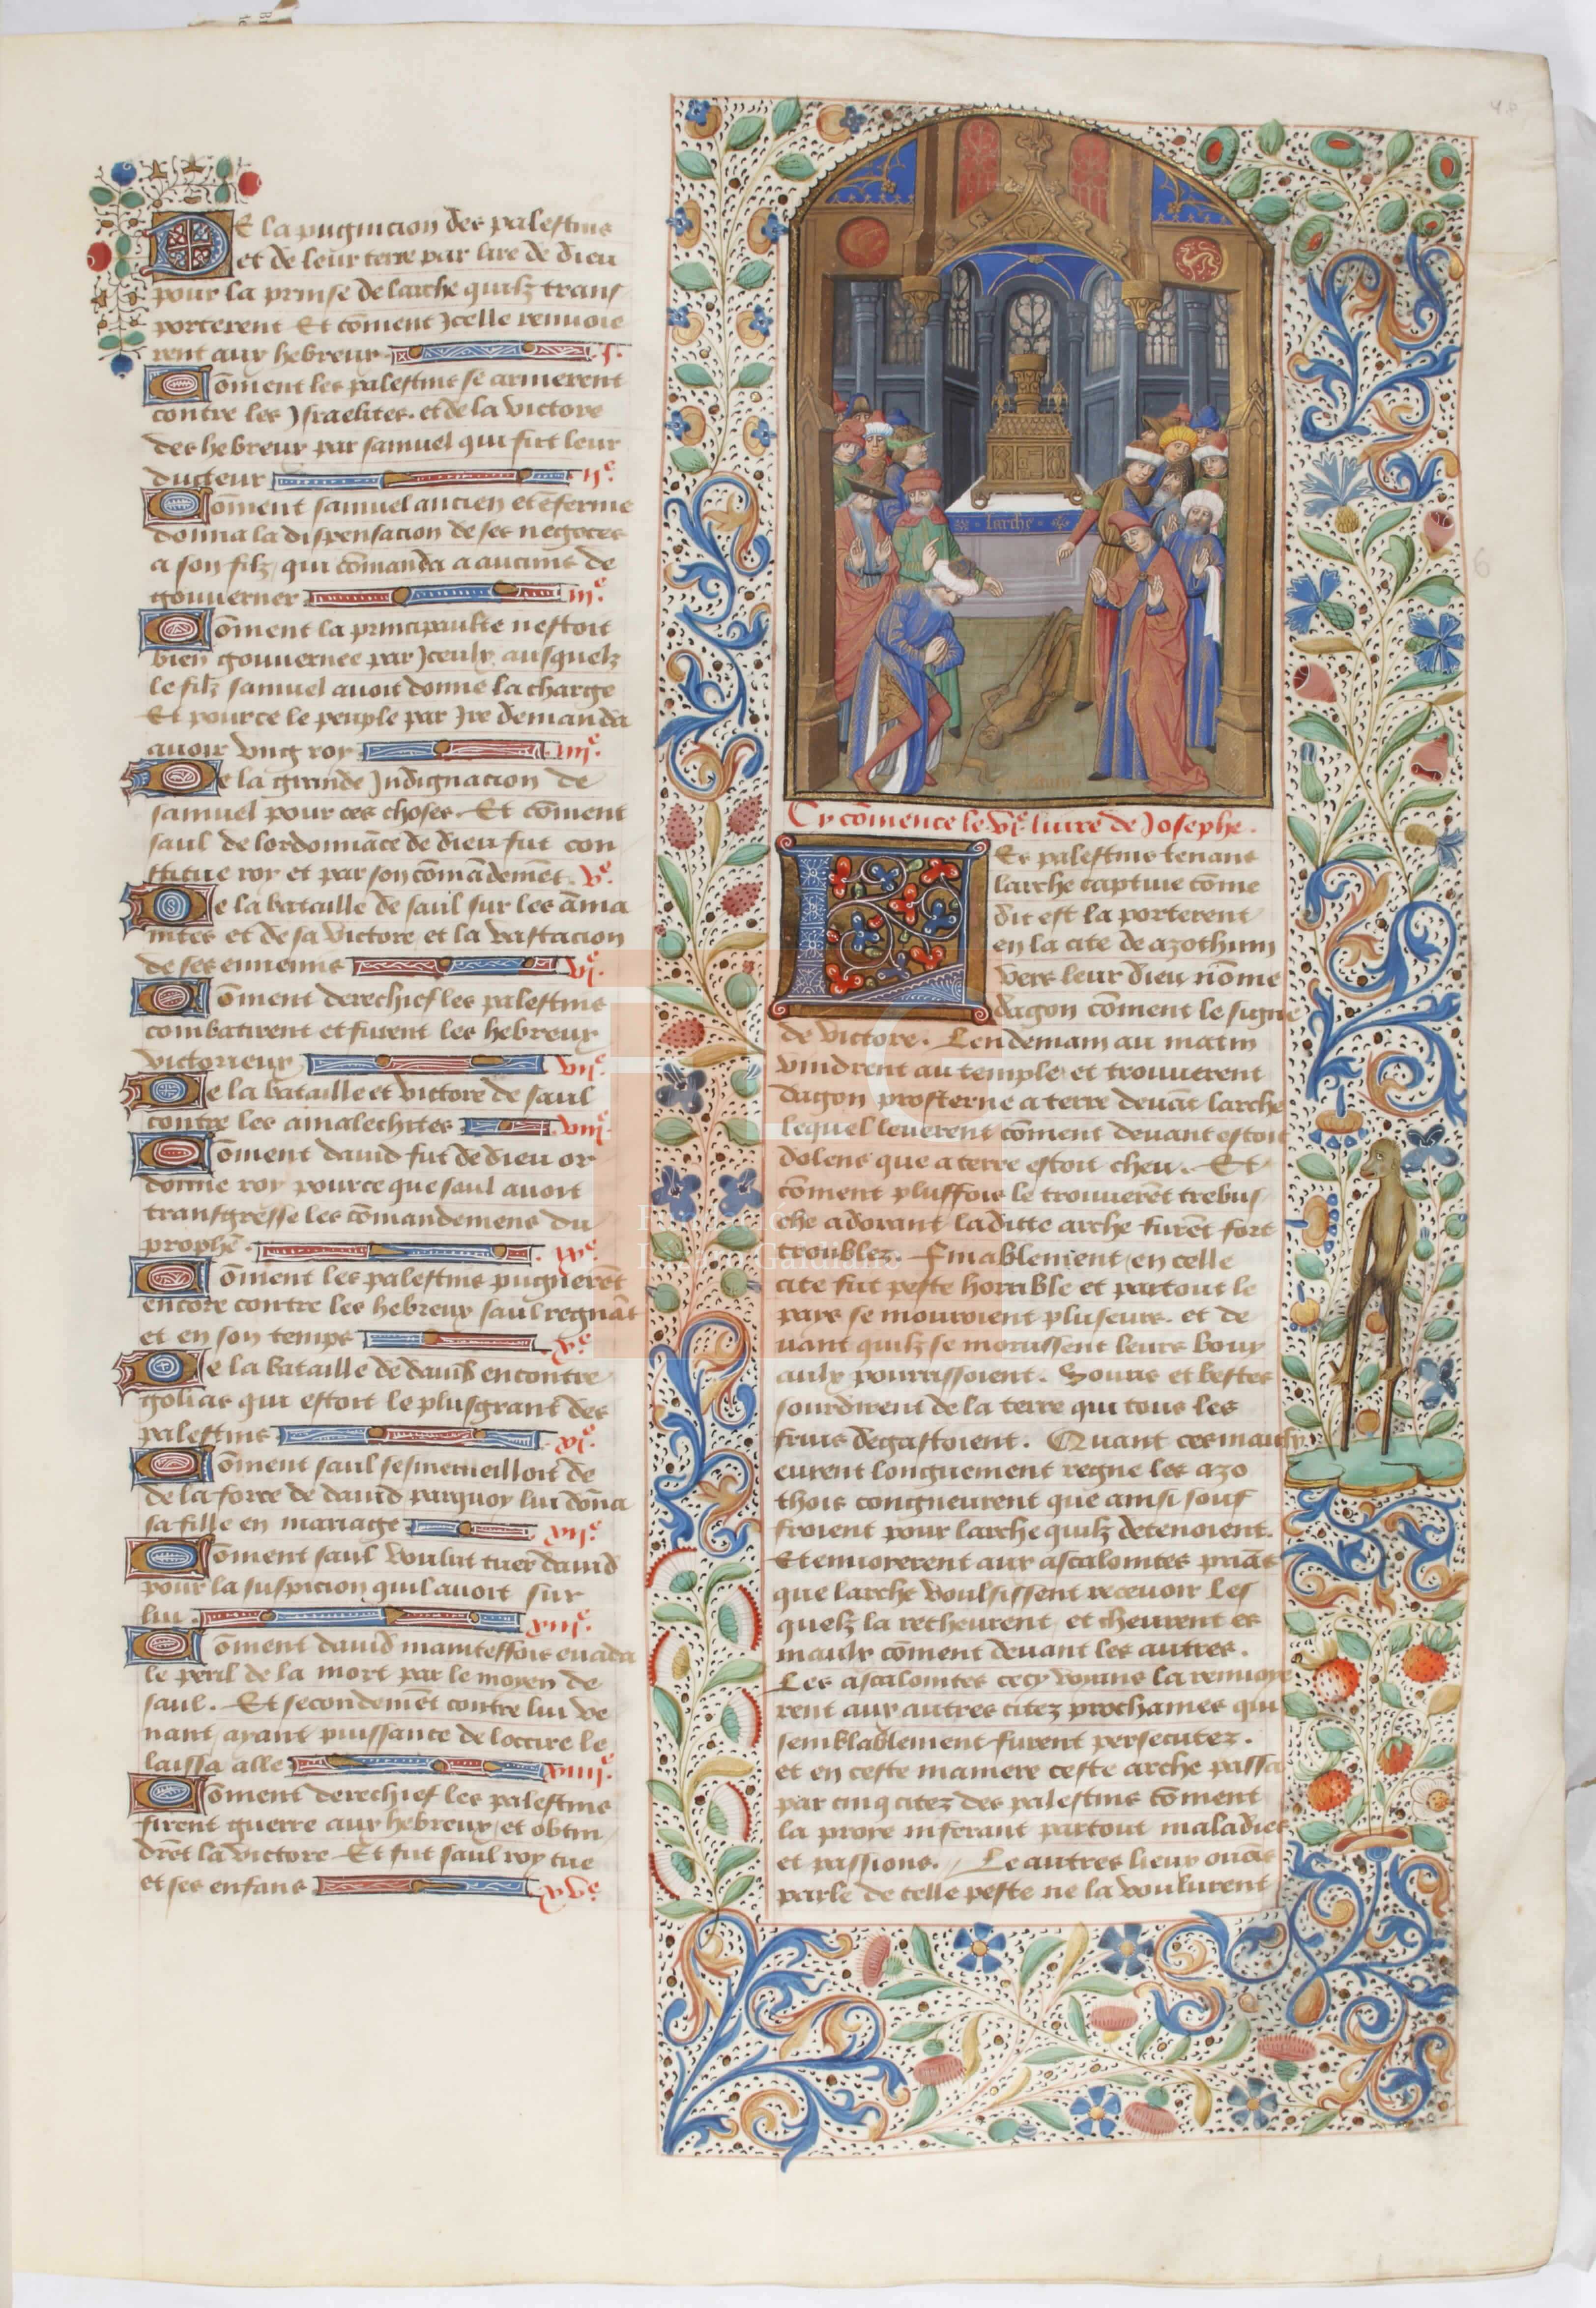 De la pugnicion des palestins
et de leur terre par lire de dieu
pour la prinse de larche quilz trans
porterent Et cõment Jcelle renuoie
rent aux hebreux .j.
Cõment les palestins se armerent
contre les Jsraelites. et de la victore
des hebreux par samuel qui fut leur
ducteur ij.e
Cõment samuel ancien et
donna la dispensacion de ses negoces
a son filz, qui cõmanda a aucuns de
gouuerner iij.e
Cõment la principaulte nestoit
bien gouuernee par Jceulx ausquelz
le filz samuel auoit donne la charge
Et pource le peuple par Jre demanda
auoir vng roy iiij.e
De la grande Jndignacion de
samuel pour ces choses. Et cõment
saul de lordonnãce de dieu fut con
stitue roy et par son cõmãdemẽt. v.e
De la bataille de saul sur les ãma
nites et de sa victore et la vastacion
de ses ennemis vi.e
Cõment derechief les palestins
combatirent et furent les hebreux
victorieux vij.e
De la bataille et victore de saul
contre les amalechites viij.e
Cõment dauid fut de dieu or
donne roy pource que saul auoit
transgresse les cõmandemens du
prophe. ix.e
Cõment les palestins pugnerẽt
encore contre les hebreux saul regnãt
et en son temps x.e
De la bataille de dauid encontre
golias qui estoit le plus grant des
palestins xi.e
Cõment saul sesmerueilloit de
de la force de dauid parquoy lui dõna
sa fille en mariage xij.e
Cõment saul voulut tuer dauid
pour la suspicion quil auoit sur
lui. xiij.e
Cõment dauid mainteffois euada
le peril de la mort par le moyen de
saul. Et secondemẽt contre lui ve
nant ayant puissance de loccire le
laissa alle xiiij.e
Cõment derechief les palestins
firent guerre aux hebreux et obtin
drẽt la victore Et fut saul roy tue
et ses enfans xv.e
larche
Cy cõmence le vi.e liure de Josephe.
Les palestins tenans
larche captiue cõme
dit est la porterent
en la cite de azothum
vers leur dieu nõme
dagon cõment le signe
de victore. Lendemain au matin
vindrent au temple et trouuerent
dagon prosterne a terre deuãt larche
lequel leuerent cõment deuant estoit
dolens que a terre estoit cheu. Et
cõment plussois le trouuerẽt trebus
che adorant laditte arche furẽt fort
troublez. Finablement en celle
cite fut peste horrible et partout le
pays se mouroient pluseurs. et de
uant quilz se morussent leurs bouy
aulx pourrissoient. Souris et bestes
sourdirent de la terre qui tous les
fruis degastoient. Quant ces maulx
eurent longuement regne les azo
thois congneurent que ainsi souf
froient pour larche quilz detenoient.
Et enuoierent aux ascalonites priãs
que larche voulsissent receuoir Les
quelz la recheurent et cheurent es
maulx cõment deuant les autres.
Les ascalonites cecy voyans la renuoye
rent aux autres citez prochaines qui
semblablement furent persecutez.
et en ceste maniere ceste arche passa
par cinq citez des palestins cõment
la proye inferant partout maladies
et passions. Le autres lieux
parle de celle peste ne la voulurent
Fundación
Lázaro Galdiano
6